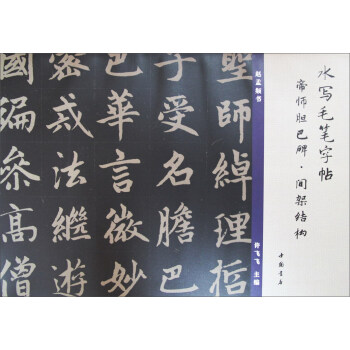 水写毛笔字帖
帝师胆巴碑·间架结构
中国书店
赵孟頫书
许飞飞 主编
聖師綽理哲
子受名膽巴
巴華言微妙
密戒法繼遊
國遍參高僧